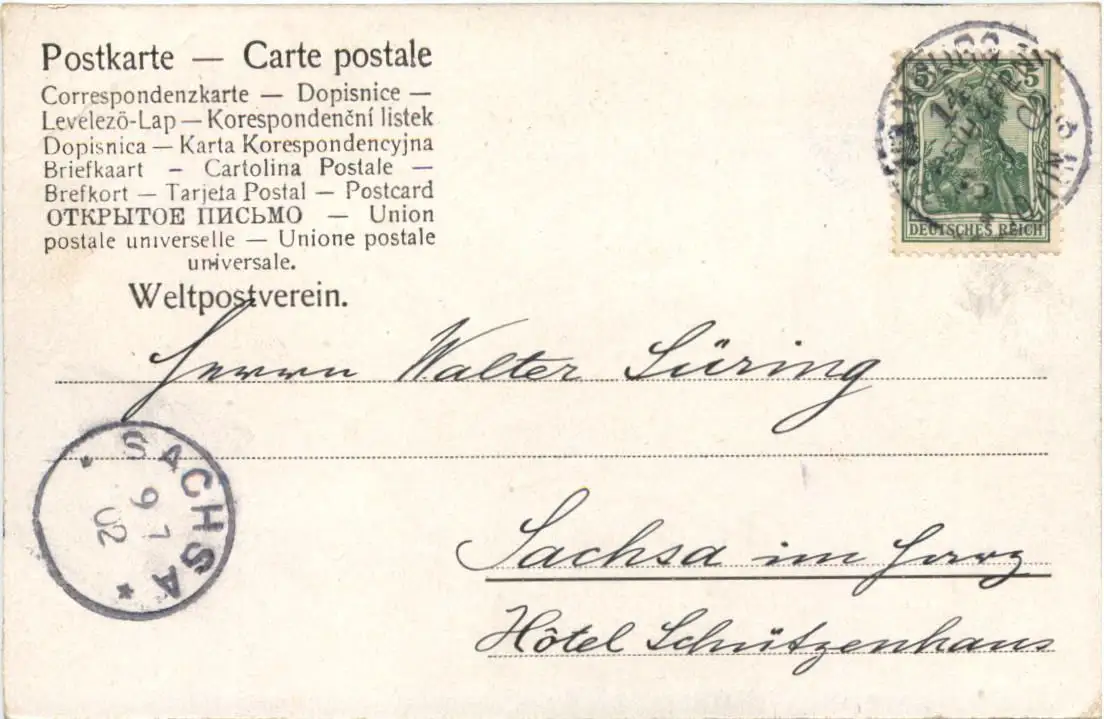 Postkarte — Carte postale
Correspondenzkarte — Dopisnice —
Levelező-Lap — Korespondenční listek
Dopisnica — Karta Korespondencyjna
Briefkaart — Cartolina Postale —
Brefkort — Tarjeta Postal — Postcard
ОТКРЫТОЕ ПИСЬМО — Union
postale universelle — Unione postale
universale.
Weltpostverein.
5 5
DEUTSCHES REICH
Herrn Walter Süring
SACHSA
9 7
02
Sachsa im Harz
Hôtel Schützenhaus